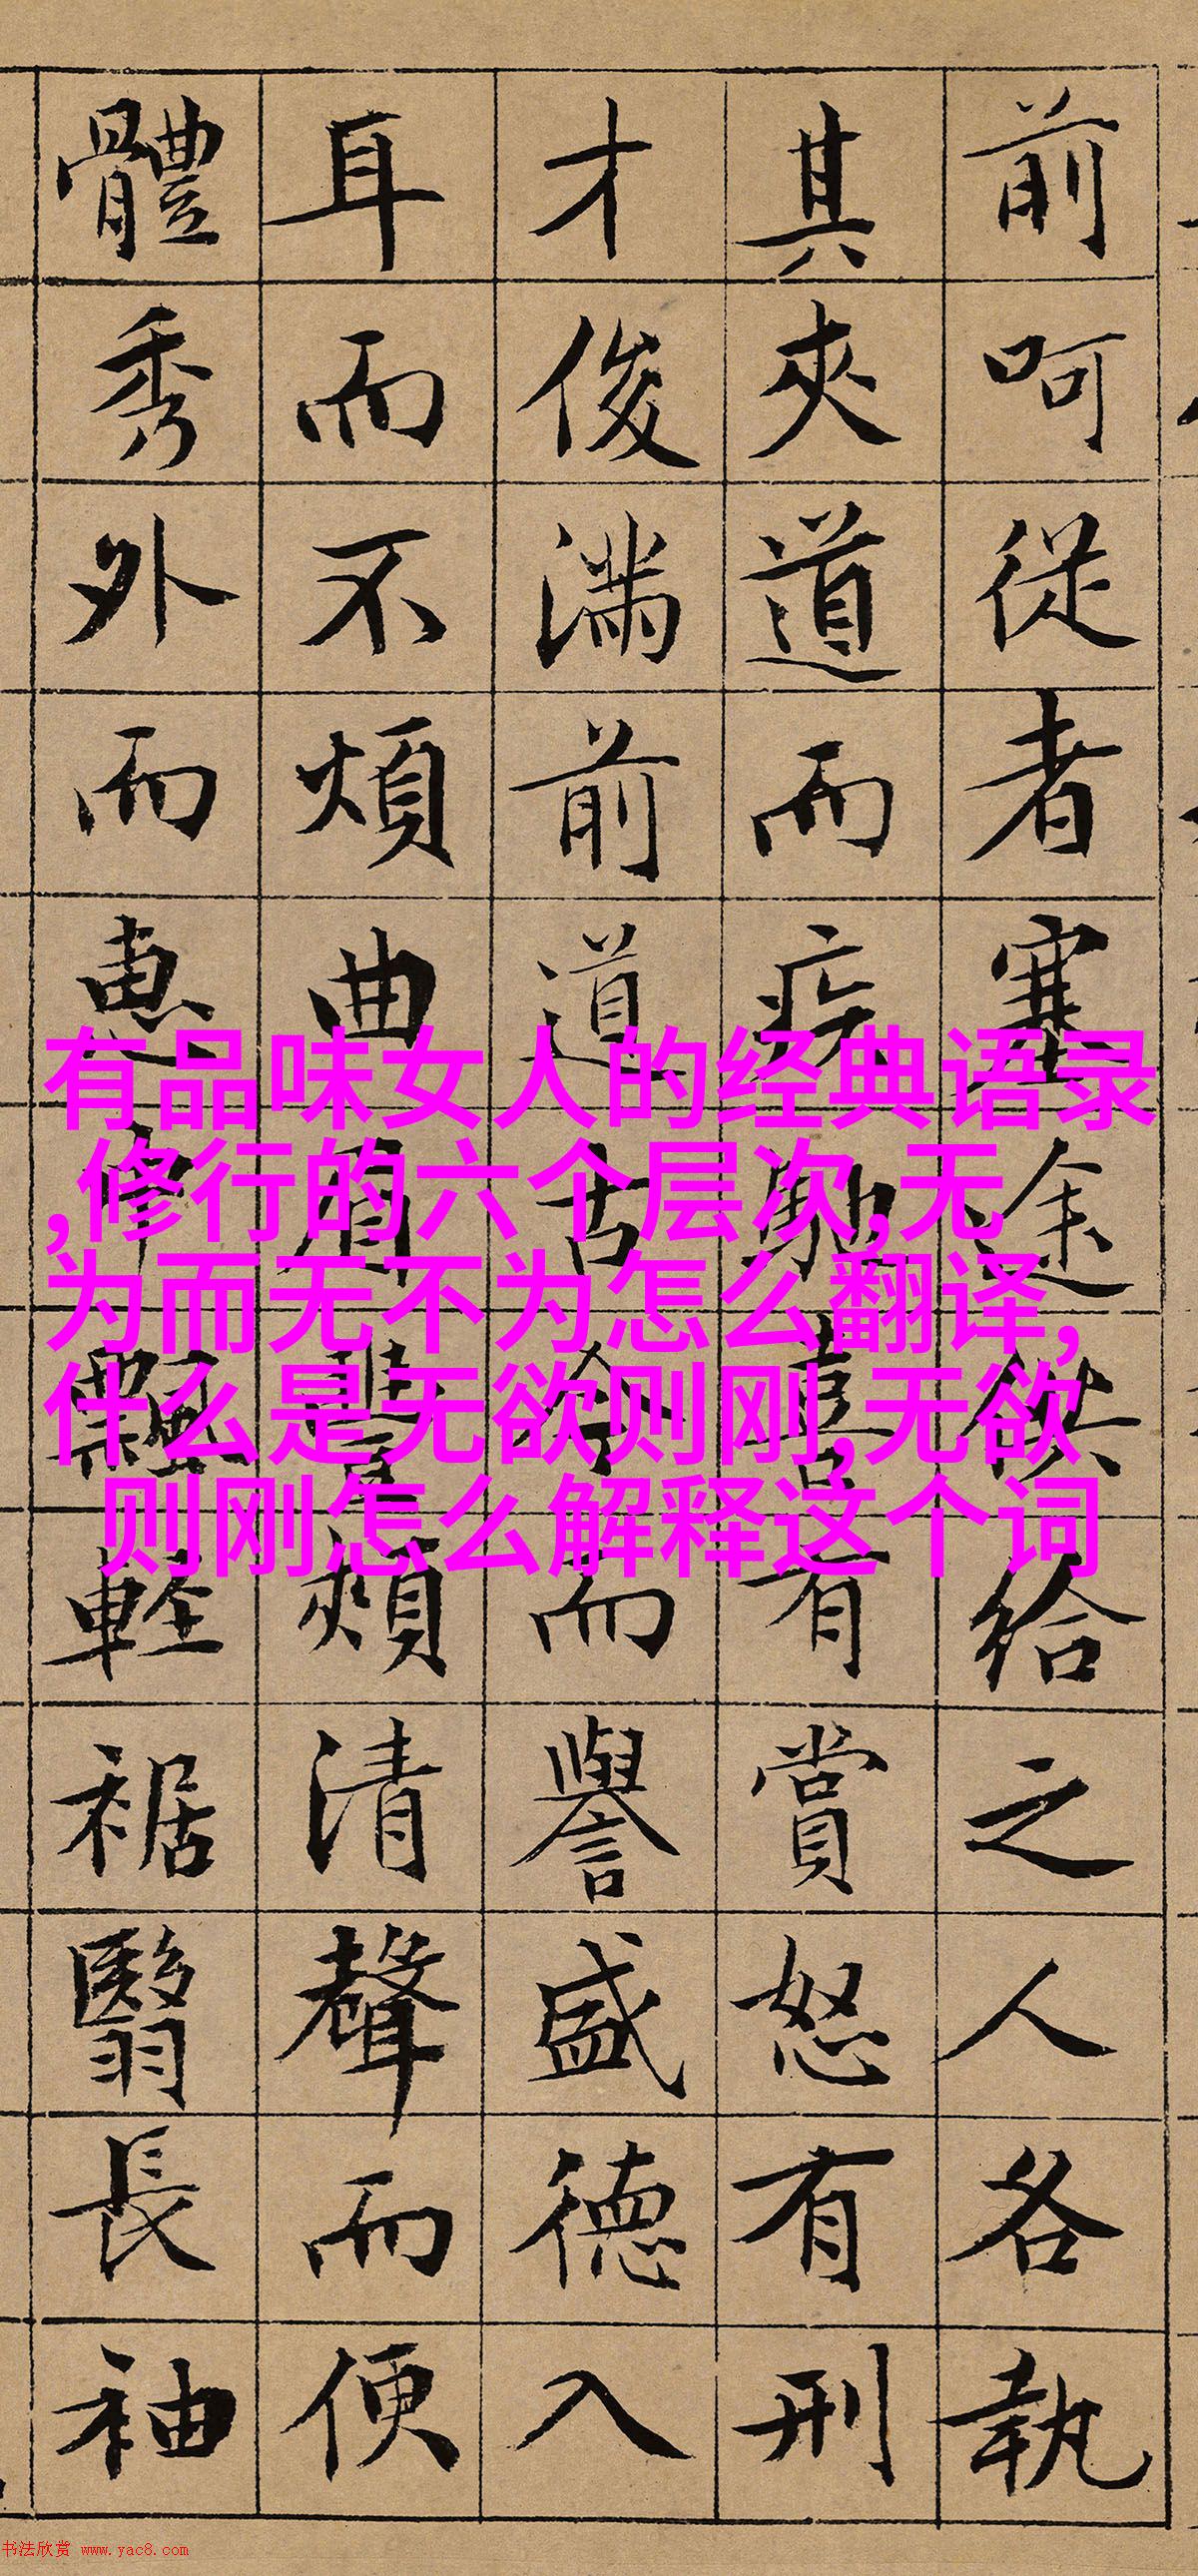 前呵從者塞途供給之人各執
其夾道而疾馳喜有賞怒有刑
才俊滿前道古今而譽盛德入
耳而不煩曲眉豐頰清聲而便
體秀外而惠中飄輕裾翳長袖
有品味女人的经典语录
,修行的六个层次,无
为而无不为怎么翻译,
什么是无欲则刚,无欲
则刚怎么解释这个词
书法欣赏 www.yac8.com